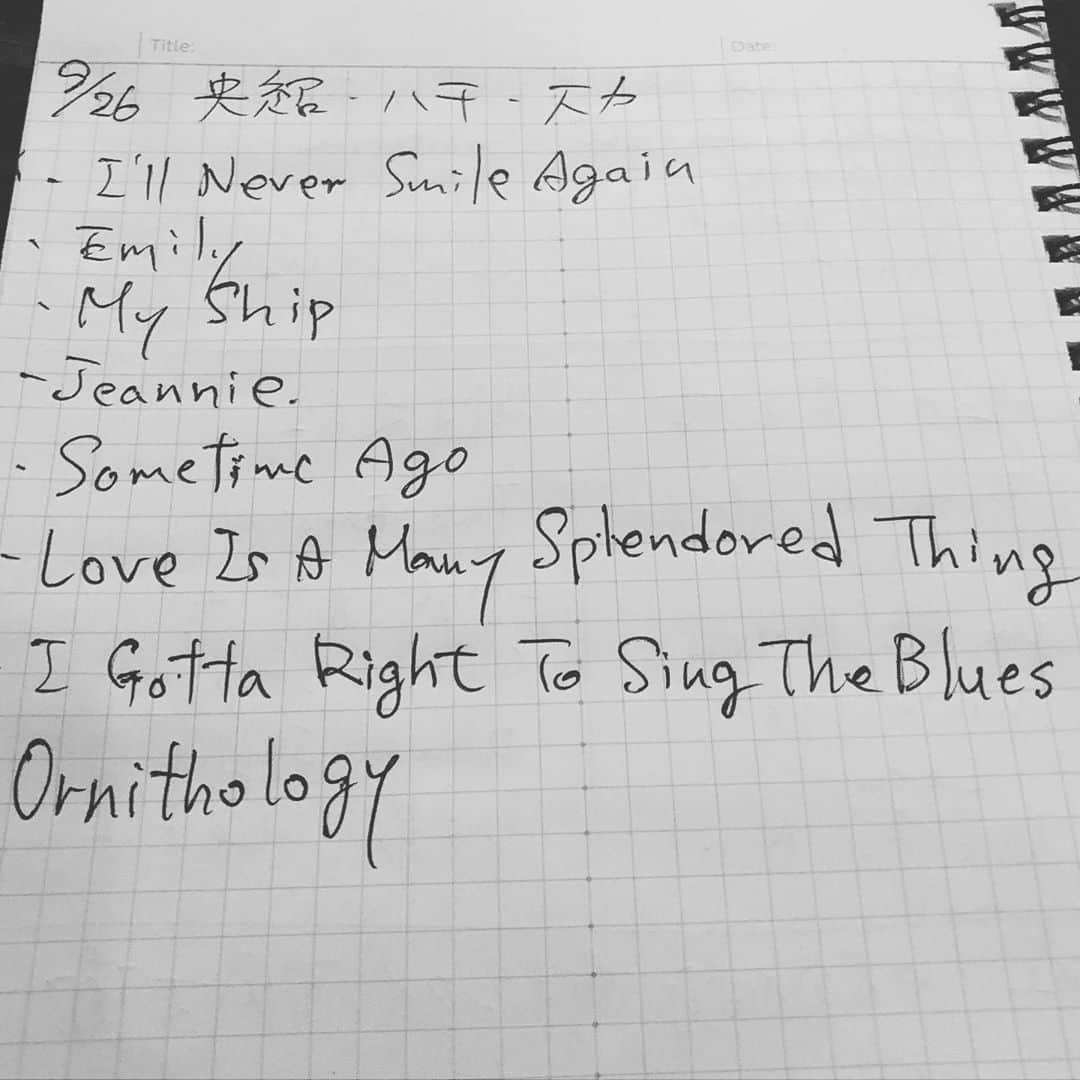 Title: Date:
9/26 央紹・八千・天力
- I'll Never Smile Again
・ Emily
・ My Ship
- Jeannie.
・ Sometime Ago
- Love Is A Many Splendored Thing
I Gotta Right To Sing The Blues
Ornithology